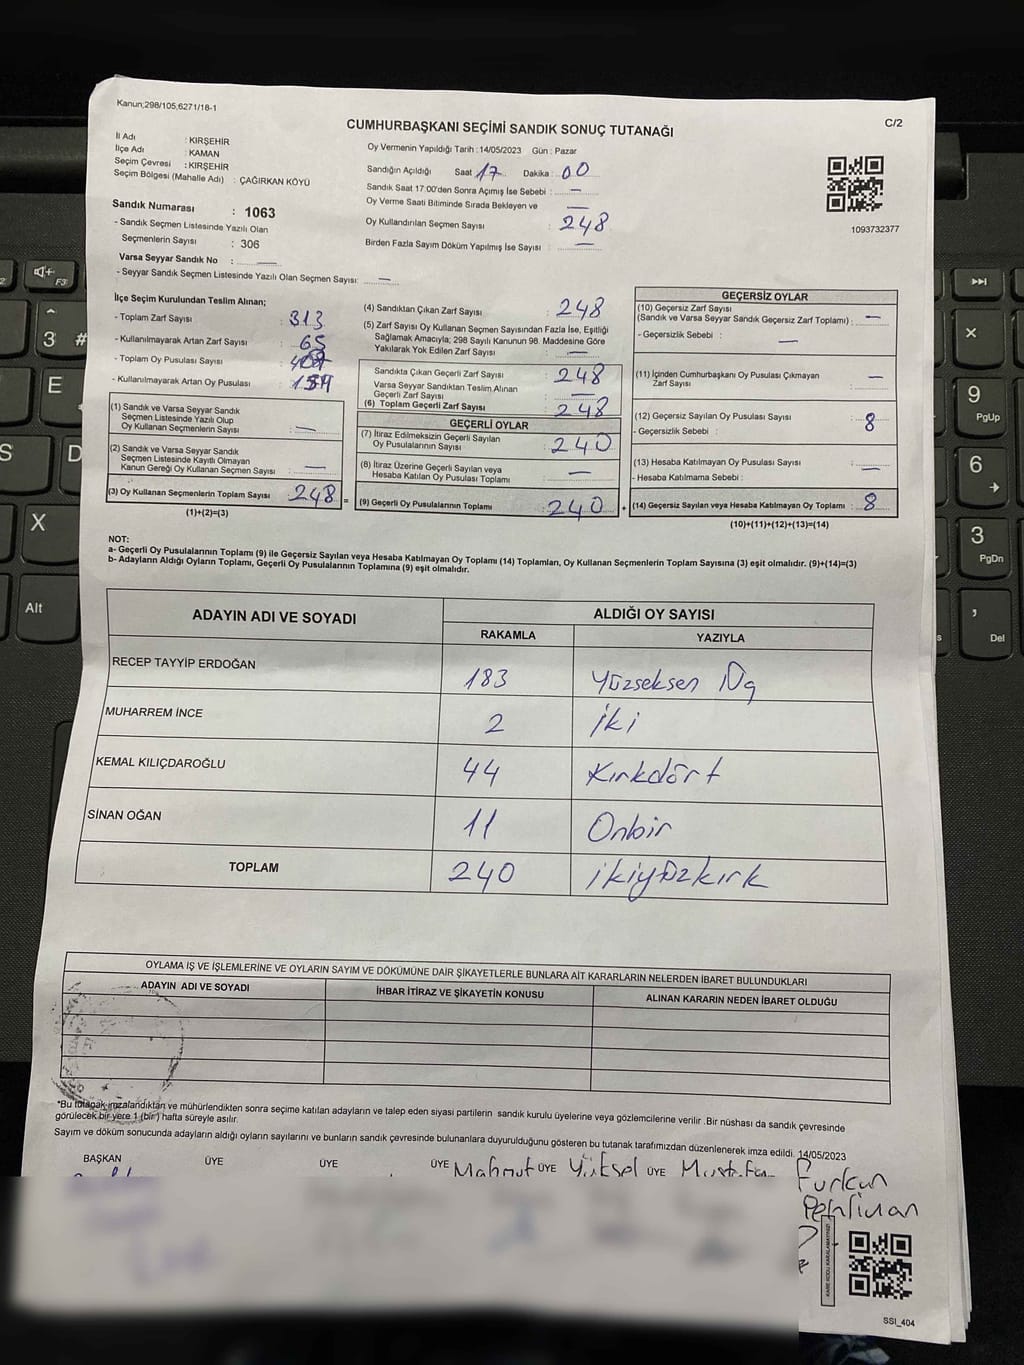 Kanun;298/105,6271/18-1
CUMHURBAŞKANI SEÇİMİ SANDIK SONUÇ TUTANAĞI
C/2
İl Adı : KIRŞEHİR
İlçe Adı : KAMAN
Seçim Çevresi : KIRŞEHİR
Seçim Bölgesi (Mahalle Adı) : ÇAĞIRKAN KÖYÜ
Sandık Numarası : 1063
- Sandık Seçmen Listesinde Yazılı Olan
Seçmenlerin Sayısı : 306
Varsa Seyyar Sandık No :
- Seyyar Sandık Seçmen Listesinde Yazılı Olan Seçmen Sayısı: —
Oy Vermenin Yapıldığı Tarih : 14/05/2023 Gün : Pazar
Sandığın Açıldığı Saat 17 Dakika : 00
Sandık Saat 17:00'den Sonra Açımış İse Sebebi : —
Oy Verme Saati Bitiminde Sırada Bekleyen ve —
Oy Kullandırılan Seçmen Sayısı : 248
Birden Fazla Sayım Döküm Yapılmış İse Sayısı : —
1093732377
İlçe Seçim Kurulundan Teslim Alınan;
- Toplam Zarf Sayısı : 313
- Kullanılmayarak Artan Zarf Sayısı : 65
- Toplam Oy Pusulası Sayısı :
- Kullanılmayarak Artan Oy Pusulası :
(1) Sandık ve Varsa Seyyar Sandık
Seçmen Listesinde Yazılı Olup
Oy Kullanan Seçmenlerin Sayısı : —
(2) Sandık ve Varsa Seyyar Sandık
Seçmen Listesinde Kayıtlı Olmayan
Kanun Gereği Oy Kullanan Seçmen Sayısı : —
(3) Oy Kullanan Seçmenlerin Toplam Sayısı 248 =
(1)+(2)=(3)
(4) Sandıktan Çıkan Zarf Sayısı : 248
(5) Zarf Sayısı Oy Kullanan Seçmen Sayısından Fazla İse, Eşitliği
Sağlamak Amacıyla; 298 Sayılı Kanunun 98. Maddesine Göre
Yakılarak Yok Edilen Zarf Sayısı : —
Sandıkta Çıkan Geçerli Zarf Sayısı : 248
Varsa Seyyar Sandıktan Teslim Alınan
Geçerli Zarf Sayısı : —
(6) Toplam Geçerli Zarf Sayısı : 248
GEÇERLİ OYLAR
(7) İtiraz Edilmeksizin Geçerli Sayılan
Oy Pusulalarının Sayısı : 240
(8) İtiraz Üzerine Geçerli Sayılan veya
Hesaba Katılan Oy Pusulası Toplamı : —
(9) Geçerli Oy Pusulalarının Toplamı 240 +
GEÇERSİZ OYLAR
(10) Geçersiz Zarf Sayısı
(Sandık ve Varsa Seyyar Sandık Geçersiz Zarf Toplamı) : —
- Geçersizlik Sebebi : —
(11) İçinden Cumhurbaşkanı Oy Pusulası Çıkmayan
Zarf Sayısı : —
(12) Geçersiz Sayılan Oy Pusulası Sayısı : 8
- Geçersizlik Sebebi :
(13) Hesaba Katılmayan Oy Pusulası Sayısı : —
- Hesaba Katılmama Sebebi :
(14) Geçersiz Sayılan veya Hesaba Katılmayan Oy Toplamı : 8
(10)+(11)+(12)+(13)=(14)
NOT:
a- Geçerli Oy Pusulalarının Toplamı (9) ile Geçersiz Sayılan veya Hesaba Katılmayan Oy Toplamı (14) Toplamları, Oy Kullanan Seçmenlerin Toplam Sayısına (3) eşit olmalıdır. (9)+(14)=(3)
b- Adayların Aldığı Oyların Toplamı, Geçerli Oy Pusulalarının Toplamına (9) eşit olmalıdır.
ADAYIN ADI VE SOYADI ALDIĞI OY SAYISI
RAKAMLA YAZIYLA
RECEP TAYYİP ERDOĞAN 183 Yüzseksen Üç
MUHARREM İNCE 2 İki
KEMAL KILIÇDAROĞLU 44 Kırkdört
SİNAN OĞAN 11 Onbir
TOPLAM 240 ikiyüzkırk
OYLAMA İŞ VE İŞLEMLERİNE VE OYLARIN SAYIM VE DÖKÜMÜNE DAİR ŞİKAYETLERLE BUNLARA AİT KARARLARIN NELERDEN İBARET BULUNDUKLARI
ADAYIN ADI VE SOYADI İHBAR İTİRAZ VE ŞİKAYETİN KONUSU ALINAN KARARIN NEDEN İBARET OLDUĞU
*Bu tutanak imzalandıktan ve mühürlendikten sonra seçime katılan adayların ve talep eden siyasi partilerin sandık kurulu üyelerine veya gözlemcilerine verilir .Bir nüshası da sandık çevresinde
görülecek bir yere 1 (bir) hafta süreyle asılır.
Sayım ve döküm sonucunda adayların aldığı oyların sayılarını ve bunların sandık çevresinde bulunanlara duyurulduğunu gösteren bu tutanak tarafımızdan düzenlenerek imza edildi. 14/05/2023
BAŞKAN ÜYE ÜYE ÜYE Mahmut ÜYE Yüksel ÜYE Mustafa Furkan
Pehlivan
KARE KODU KARALAMAYINIZ!
SSI_404